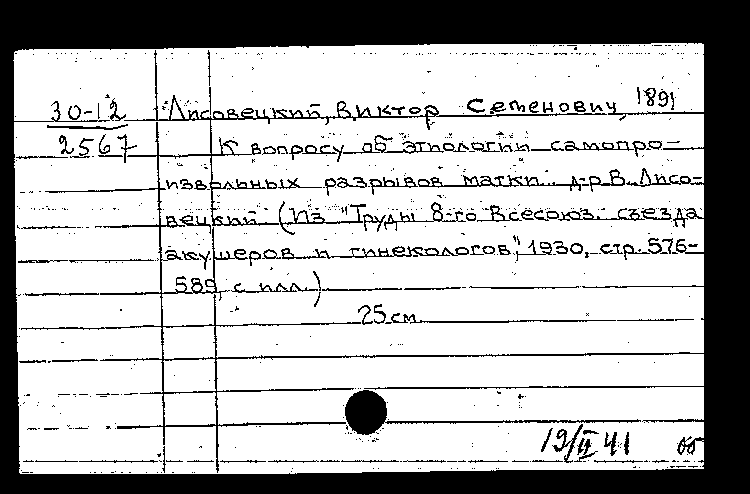 30-12
2567
Лисовецкий, Виктор Семенович, 1891
К вопросу об этиологии самопро-
извольных разрывов матки.. д-р В. Лисо-
вецкий (Из "Труды 8-го Всесоюз. съезда
акушеров и гинекологов", 1930, стр. 576-
589, с илл.)
25 см.
19/II 41 об